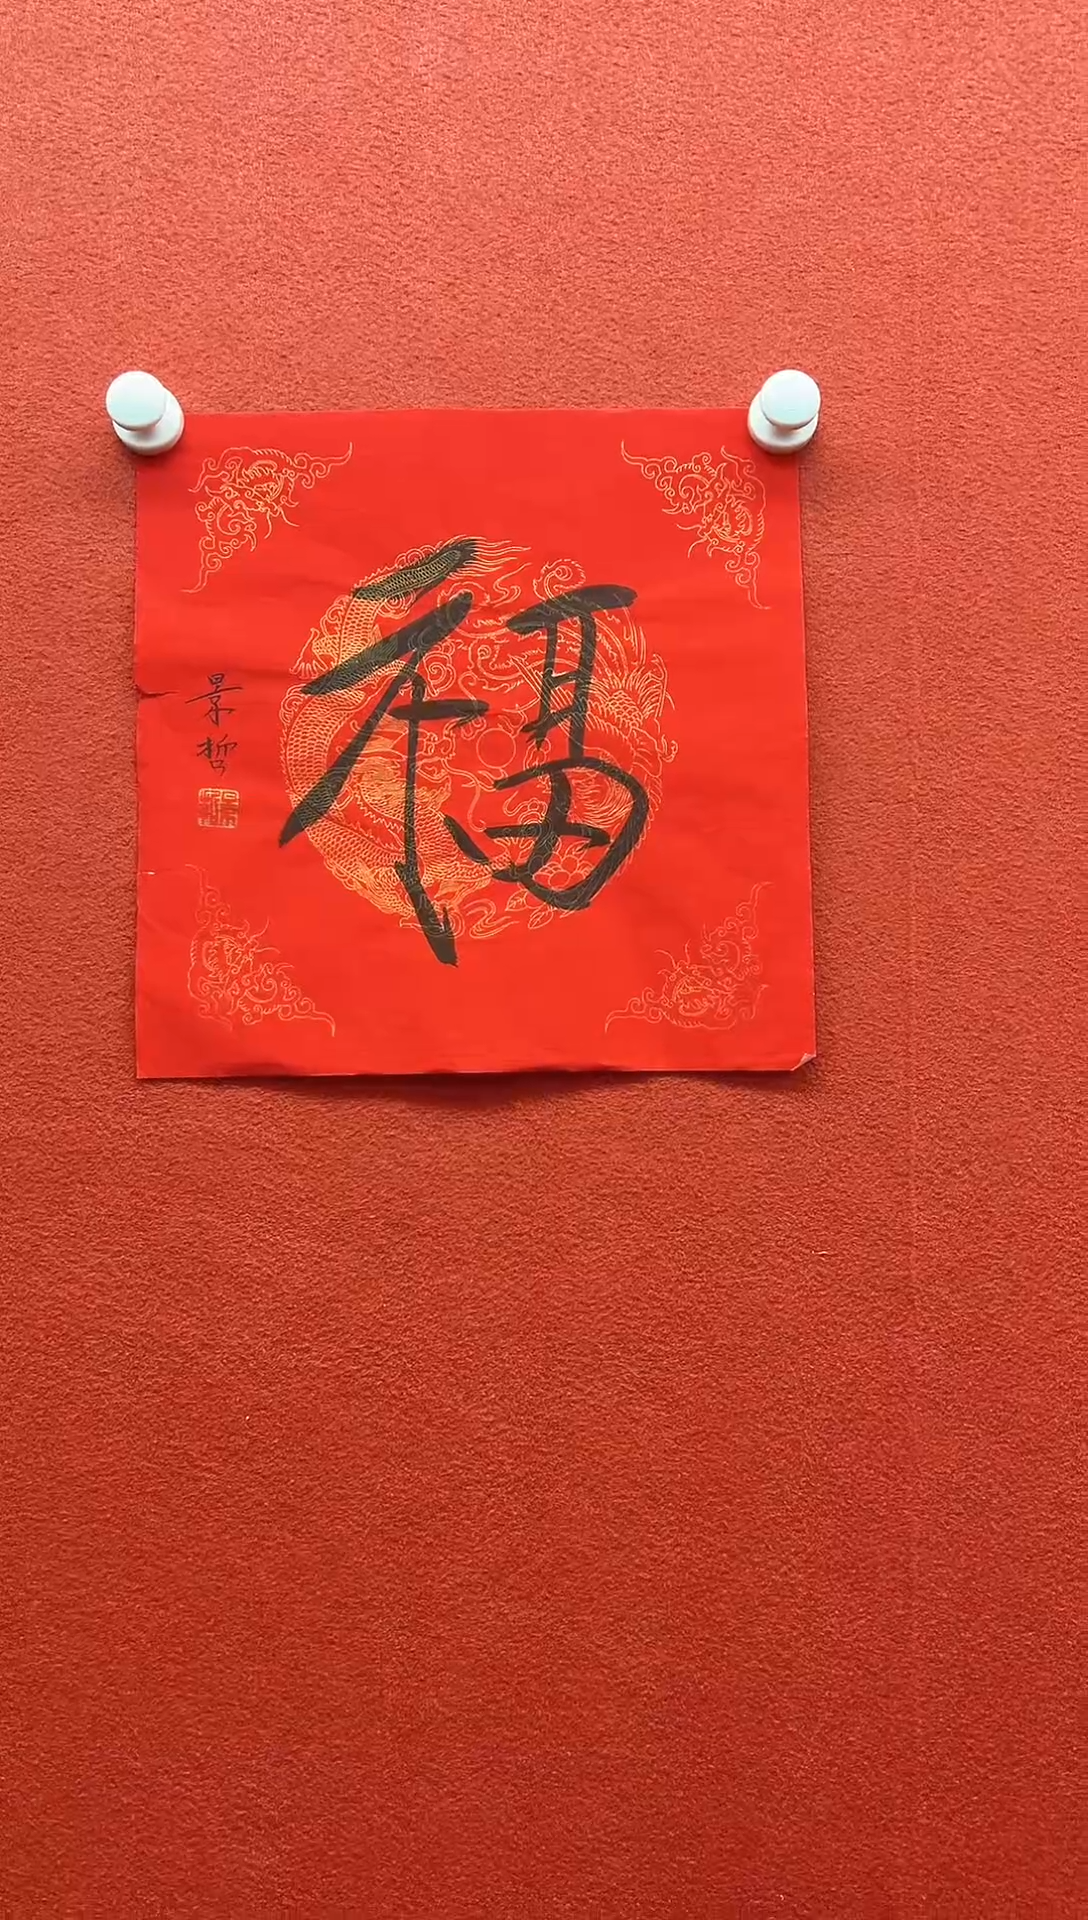 福
景哲